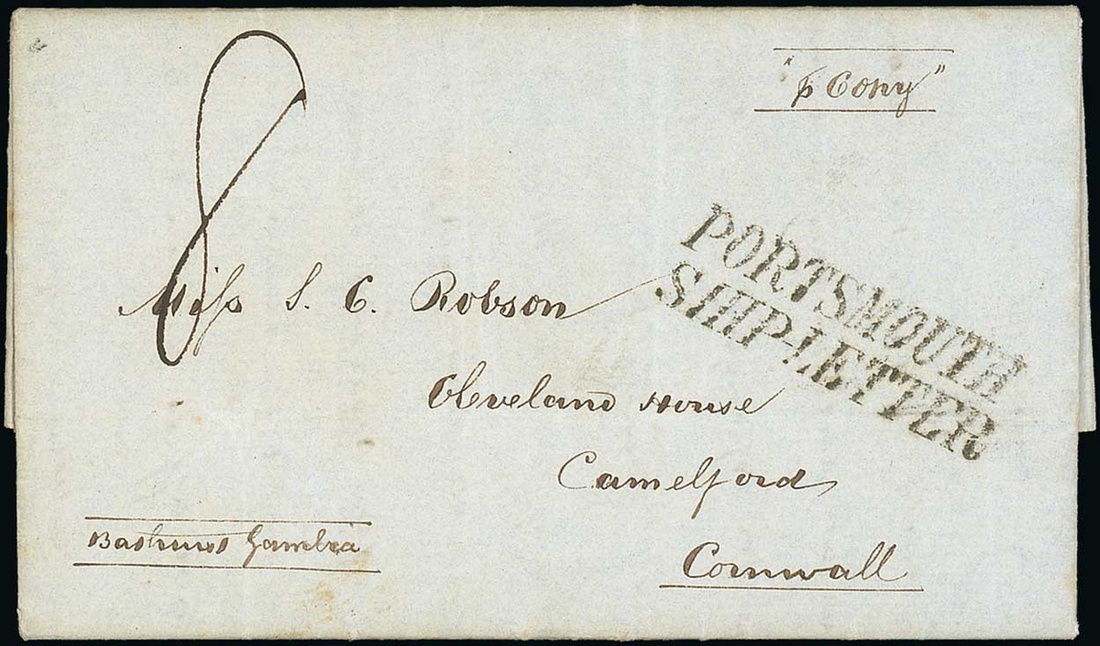 "p Cony"
8
PORTSMOUTH
SHIP-LETTER
Miss S. C. Robson
Cleveland House
Camelford
Cornwall
Gambia